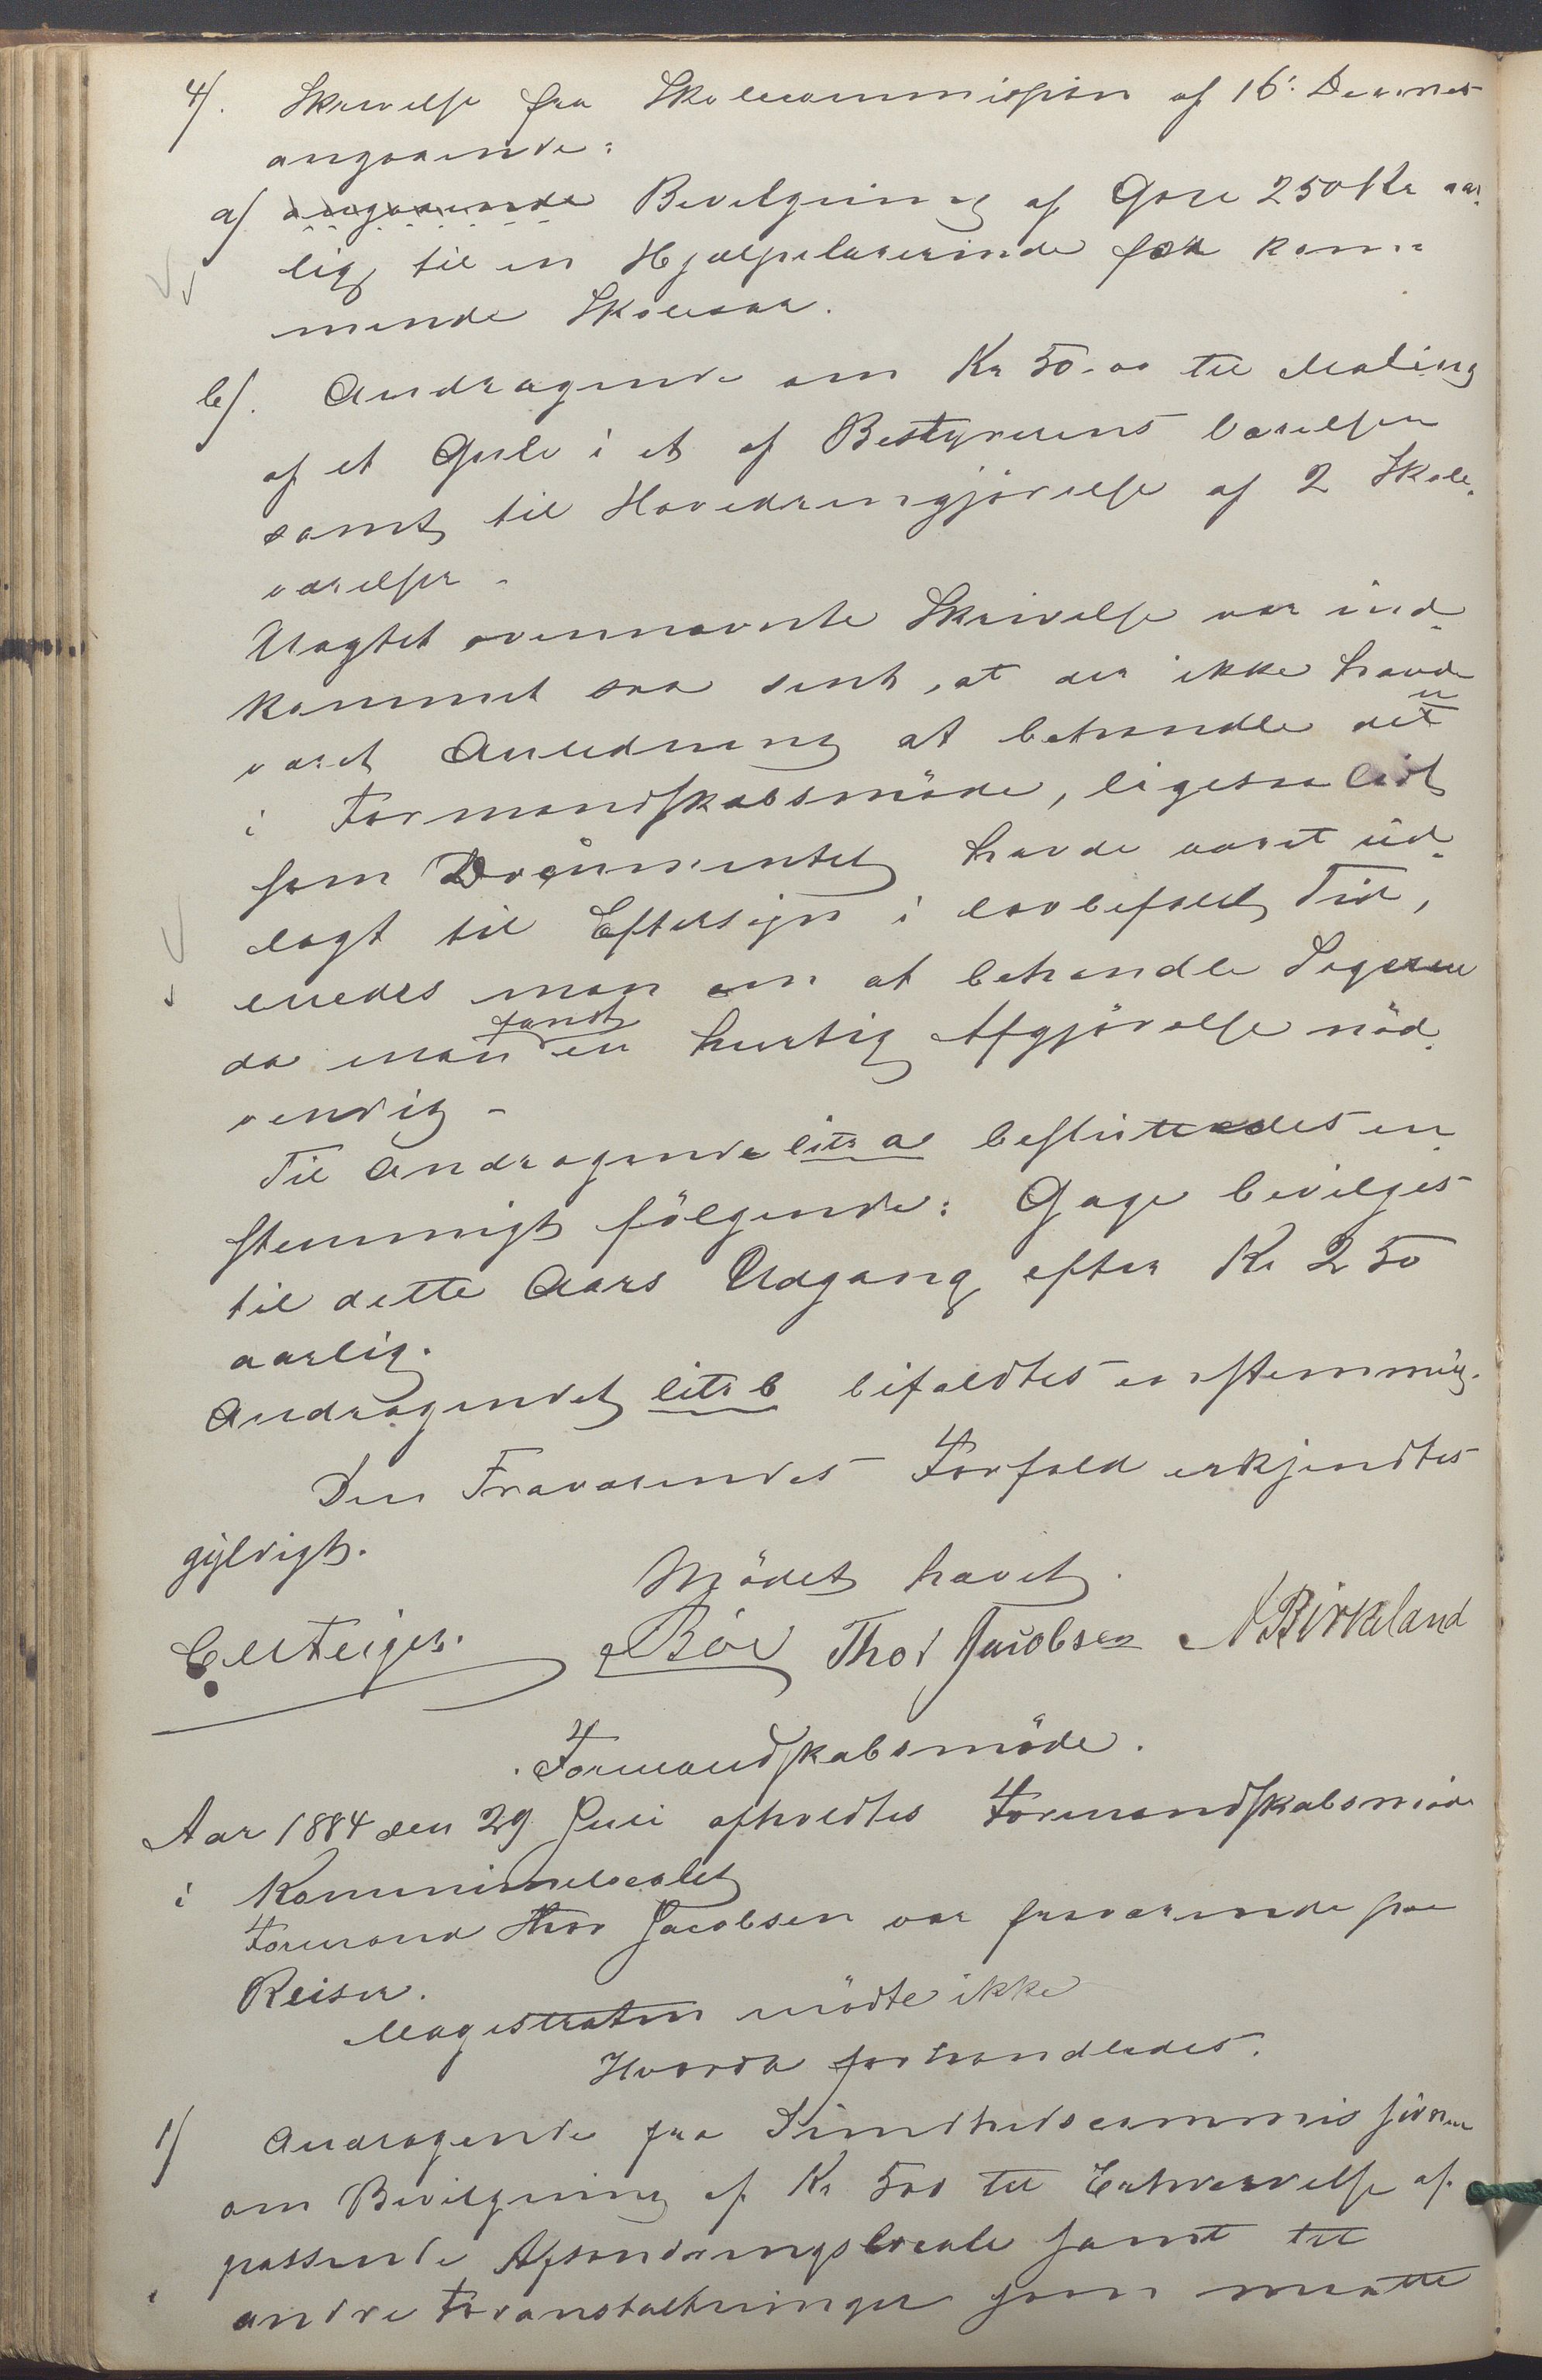 4/. Skrivelse fra Skolecommission af 16: Dennes
angaaende:
a/ angaaende Bevilgning af Gage 250 Kr aar-
lig til en Hjælpelærerinde for kom-
mende Skoleaar.
b/. Andragende om Kr 50.00 til Maling
af et Gulv i et af Bestyrerens værelser
samt til Hovedrengjörelse af 2 Skole-
værelser.
Uagtet ovennævnte Skrivelse var ind-
kommet saa sent, at der ikke havde
været Anledning at behandle den
i Formandskabsmöde, ligesaalidt
som Documentet havde været ud-
lagt til Eftersyn i lovbefalet Tid,
enedes man om at behandle Sagerne
da man fandt en hurtig Afgjörelse nöd-
vendig.
Til Andragende litr a besluttedes en
stemmigt fölgende: Gage bevilges
til dette Aars Udgang efter Kr 250
aarlig.
Andragendet litr b bifaldtes enstemmig.
Den Fraværendes Forfald erkjendtes
gyldigt.
Mödet hævet.
Böe Thor Jacobsen N Birkeland
Formandskabsmöde.
Aar 1884 den 29 Juli afholdtes Formandskabsmöde
i Kommunelocalet
Formand Thor Jacobsen var fraværende paa
Reiser.
Magistraten mödte ikke
Hvorda forhandledes.
1/ Andragende fra Sundhedscommissionen
om Bevilgning af Kr 500 til Erhvervelse af
passende Afsondringslocale samt til
andre Foranstaltninger som maatte